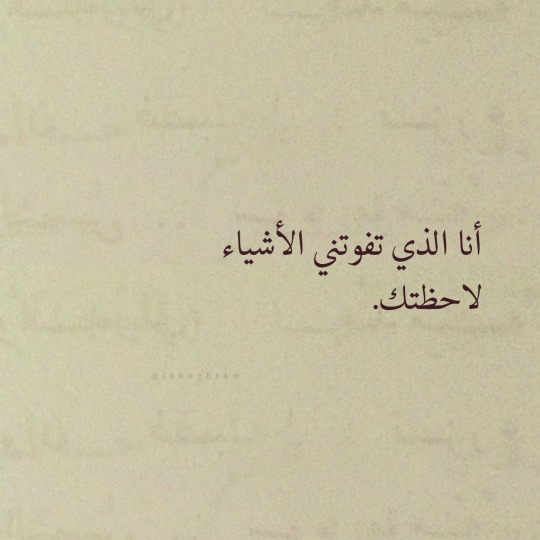 أنا الذي تفوتني الأشياء
لاحظتك.